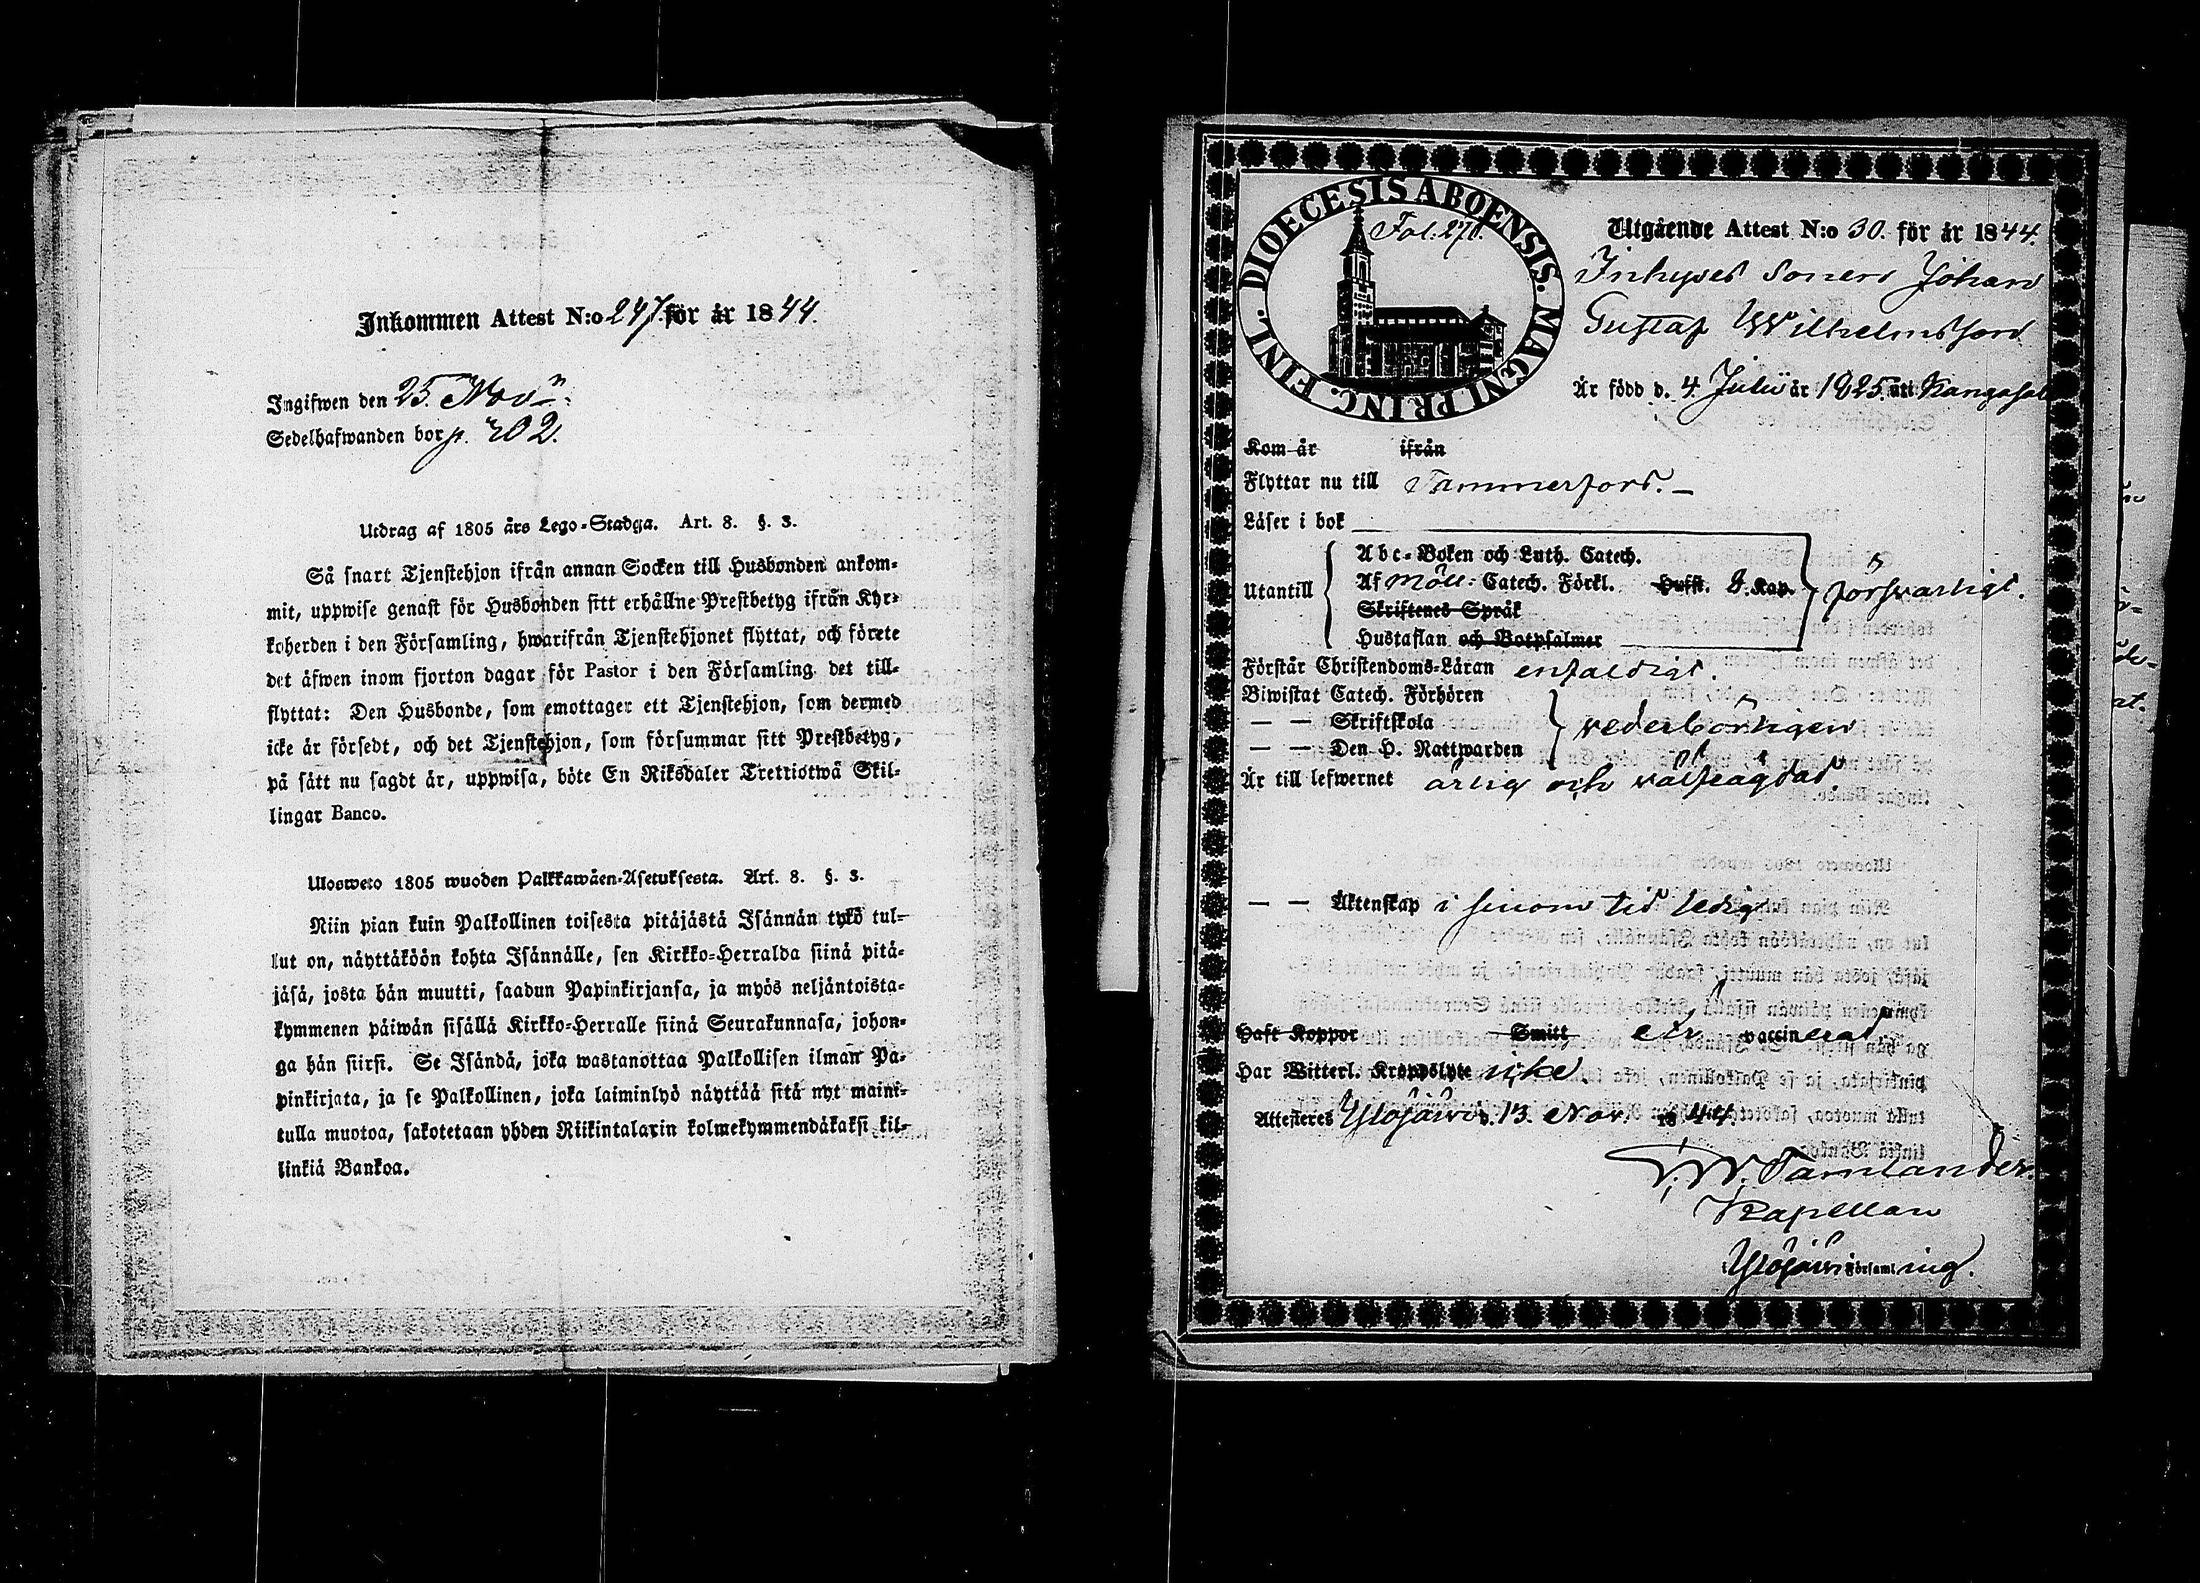 Inkommen Attest N:o 247. för år 1844.
Ingifwen den 25. Nov:n
Sedelhafwanden bor p. 202.
Utdrag af 1805 års Lego-Stadga. Art. 8. §. 3.
Så snart Tjenstehjon ifrån annan Socken till Husbonden ankom-
mit, uppwise genast för Husbonden sitt erhållne Prestbetyg ifrån Kyr-
koherden i den Församling, hwarifrån Tjenstehjonet flyttat, och förete
det äfwen inom fjorton dagar för Pastor i den Församling det till-
flyttat: Den Husbonde, som emottager ett Tjenstehjon, som dermed
icke är försedt, och det Tjenstehjon, som försummar sitt Prestbetyg,
på sätt nu sagdt är, uppwisa, böte En Riksdaler Trettiotwå Skil-
lingar Banco.
Ulosweto 1805 wuoden Palkkawäen-Asetuksesta. Art. 8. §. 3.
Niin pian kuin Palkollinen toisesta pitäjästä Isännän tykö tul-
lut on, näyttäköön kohta Isännälle, sen Kirkko-Herralda siinä pitä-
jäsä, josta hän muutti, saadun Papinkirjansa, ja myös neljäntoista-
kymmenen päiwän sisällä Kirkko-Herralle siinä Seurakunnasa, johon-
ga hän siirsi. Se Isändä, joka wastanottaa Palkollisen ilman Pa-
pinkirjata, ja se Palkollinen, joka laiminlyö näyttää sitä nyt maini-
tulla muotoa, sakotetaan yhden Riikintalarin kolmekymmendäkaksi kil-
linkiä Bankoa.
DIOECESIS ABOENSIS. MAGNI PRINC. FINL.
Fol: 270.
Utgående Attest N:o 30. för år 1844.
Inhyses sonen Johan
Gustaf Wilhelmsson
Är född d. 4 Julii år 1825. uti Kangasala
Kom år ifrån
Flyttar nu till Tammerfors. –
Läser i bok
Utantill
Abc-Boken och Luth. Catech.
Af Möll: Catech. Förkl. Hufst. 8. Kap.
Skriftenes Språk
Hustaflan och Botpsalmer
försvarligt.
Förstår Christendoms-Läran enfaldigt.
Biwistat Catech. Förhören
— — Skriftskola
— — Den H. Nattwarden
vederbörligen
Är till lefwernet ärlig och välfrägdad
— — Äktenskap i sinom tid ledig
Haft Koppor Smitt eir vaccinerad
Har Witterl. Kroppslyte icke
Attesteres Ylöjärvi d. 13. Nov. 1844.
Tamlander.
Kapellan
i Ylöjärvi Församling.